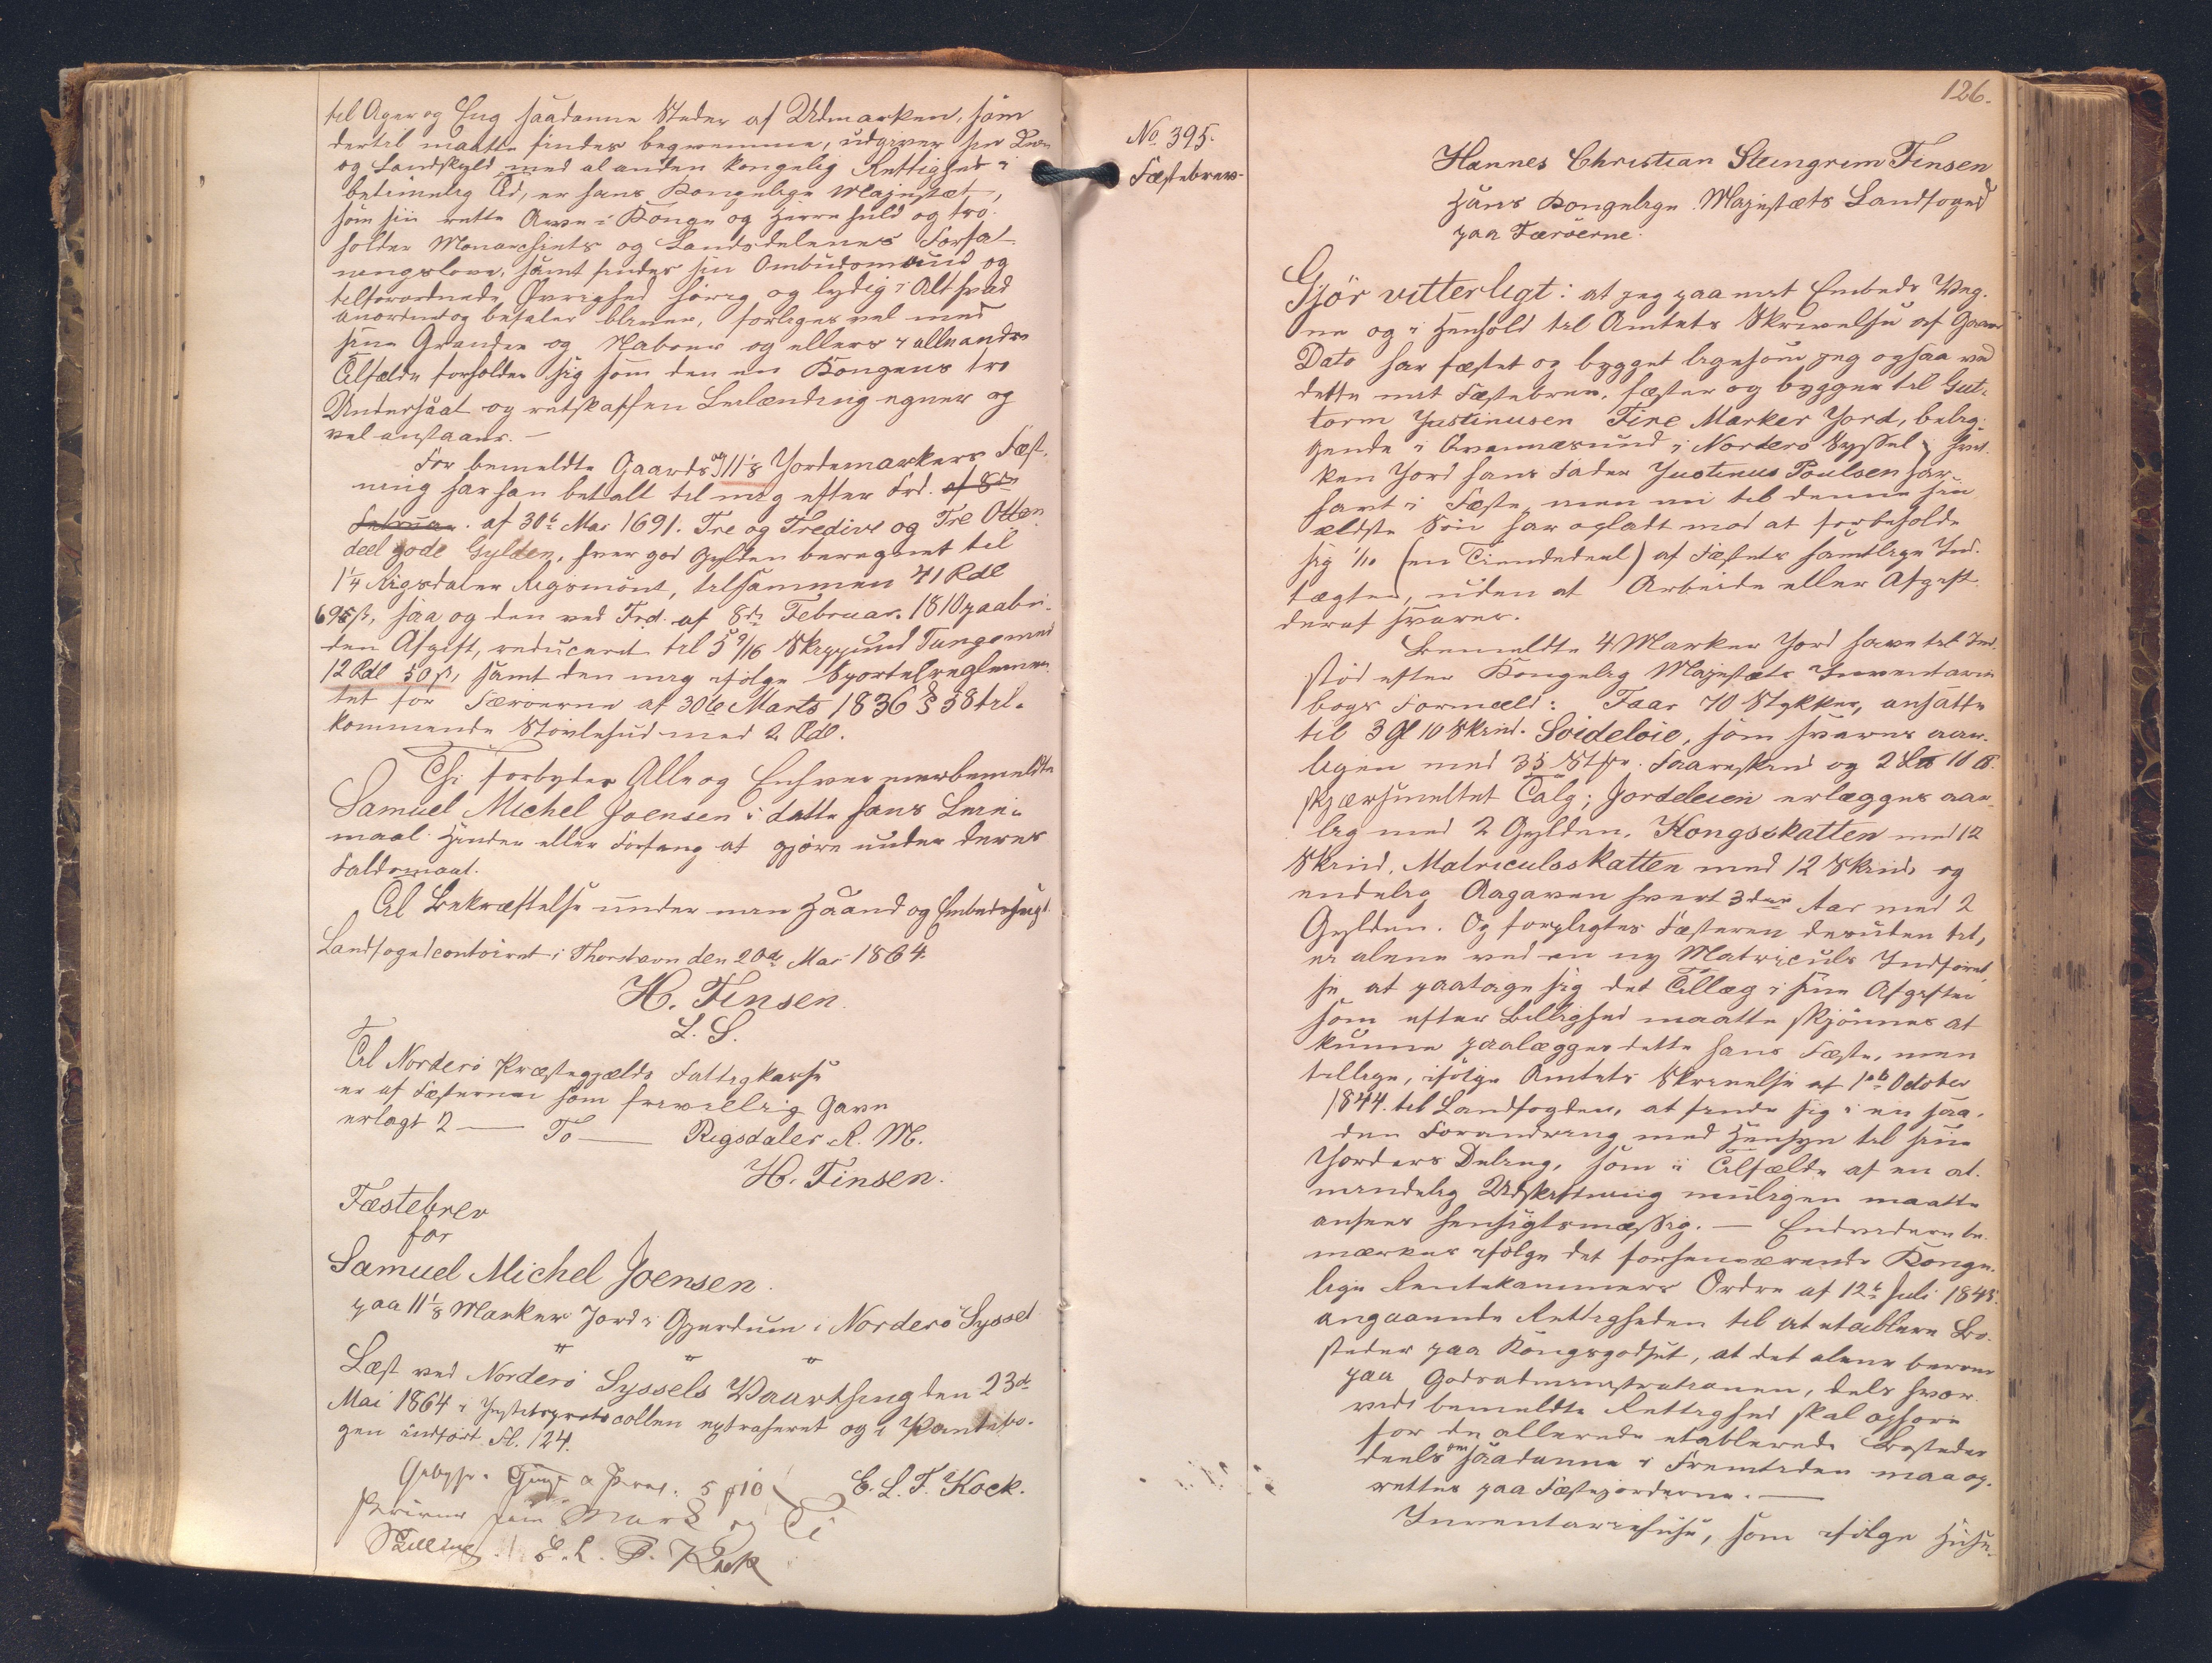 til Ager og Eng saadanne Steder af Udmarken, som
dertil maatte findes beqvemme, udgiver sin Leie
og Landskyld med al anden kongelig Rettighed i
betimelig Tid, er hans Kongelige Majestæt,
som sin rette Arve-Konge og Herre huld og tro
holder Monarchiets og Landsdelenes Forfat-
ningslove, samt findes sin Ombudsmand og
tilforordnede Øvrighed hørig og lydig i Alt hvad
anordnet og befalet bliver, forliges vel med
sine Grander og Naboer og ellers i alle andre
Tilfælde forholder sig som den en Kongens tro
Undersaat og retskaffen Leilænding egner og
vel anstaaer. —
For bemeldte Gaards og 11 1/8 Jordemarkers Fæst-
ning har han betalt til mig efter Frd. af 8de
Februar. af 30te Mai 1691. Tre og Tredive og Tre Otten-
deel gode Gylden, hver god Gylden beregnet til
1 1/4 Rigsdaler Rigsmønt, tilsammen 41 Rdl
69 ß, saa og den ved Frd. af 8de Februar. 1810 paabu-
den Afgift, reduceret til 5 9/16 Skippund Tunge med
12 Rdl 50 ß, samt den mig ifølge Sportelreglemen-
tet for Færøerne af 30te Marts 1836 § 58 til-
kommende Støvlehud med 2 Rdl.
Thi forbydes Alle og Enhver merbemeldte
Samuel Michel Joensen i dette hans Leie-
maal Hinder eller Forfang at gjøre under deres
Faldsmaal.
Til Bekræftelse under min Haand og Embedssegl
Landfogedcontoiret i Thorshavn den 20de Mai 1864.
H. Finsen.
L. S.
Til Norderø Præstegjælds Fattigkasse
er af Fæsteren som frivillig Gave
erlagt 2 — To — Rigsdaler R. M.
H. Finsen.
Fæstebrev
for
Samuel Michel Joensen.
paa 11 1/8 Marker Jord i Gjerdum i Norderø Syssel
" " "
Læst ved Norderø Syssels Vaarthing den 23de
Mai 1864 i Justitsprotocollen extraheret og i Pantebo-
gen indført Fl. 124.
E. L. T. Kock.
Gebyhr. 5 ƒ 10
skriver fem Mark og Ti
Skilling. E. L. T. Kock
No 395.
Fæstebrev
126.
Hannes Christian Steingrim Finsen
Hans Kongelige Majestæts Landfoged
paa Færøerne.
Gjør vitterligt: at jeg paa mit Embeds Veg-
ne og i Henhold til Amtets Skrivelse af Gaars
Dato har fæstet og bygget ligesom jeg ogsaa ved
dette mit Fæstebrev, fæster og bygger til Gut-
torm Justinusen Fire Marker Jord, belig-
gende i Qvannæsund i Norderø Syssel, hvil-
ken Jord hans Fader Justinus Poulsen har
havt i Fæste, men nu til denne sin
ældste Søn har opladt mod at forbeholde
sig 1/10 (en Tiendedeel) af Fæstets samtlige Ind-
tægter, uden at Arbeide eller Afgift
deraf svares.
Bemeldte 4 Marker Jord have til Ind-
stød efter Kongelig Majestæts Inventarii
bogs Formæld: Faar 70 Stykker, ansatte
til 3 Gl 10 Skind. Soideløie, som svares aar-
ligen med 35 Stkr. Faareskind og 2 L℔ 10 ℔.
skjærsmeltet Talg; Jordeleien erlægges aar-
lig med 2 Gylden. Kongsskatten med 12
Skind, Matriculsskatten med 12 Skind og
endelig Aagaven hvert 3die Aar med 2
Gylden. Og forpligtes Fæsteren desuden til,
ei alene ved en ny Matriculs Indførel-
se at paatage sig det Tillæg i sine Afgifter
som efter Billighed maatte skjønnes at
kunne paalægges dette hans Fæste, men
tillige, ifølge Amtets Skrivelse af 1ste October
1844. til Landfogden, at finde sig i en saa-
dan Forandring med Hensyn til sine
Jorders Deling, som i Tilfælde af en al-
mindelig Udskiftning muligen maatte
ansees hensigtsmæssig. — Endvidere be-
mærkes ifølge det forhenværende Konge-
lige Rentekammers Ordre af 12te Juli 1845.
angaaende Rettigheden til at etablere Bo-
steder paa Kongsgodset, at det alene beroer
paa Godsadministrationen, dels hvor-
vidt bemeldte Rettighed skal ophøre
for de allerede etablerede Bosteder
deels om saadanne i Fremtiden maa op-
rettes paa Fæstejorderne. —
Inventariihuse, som ifølge Huse-